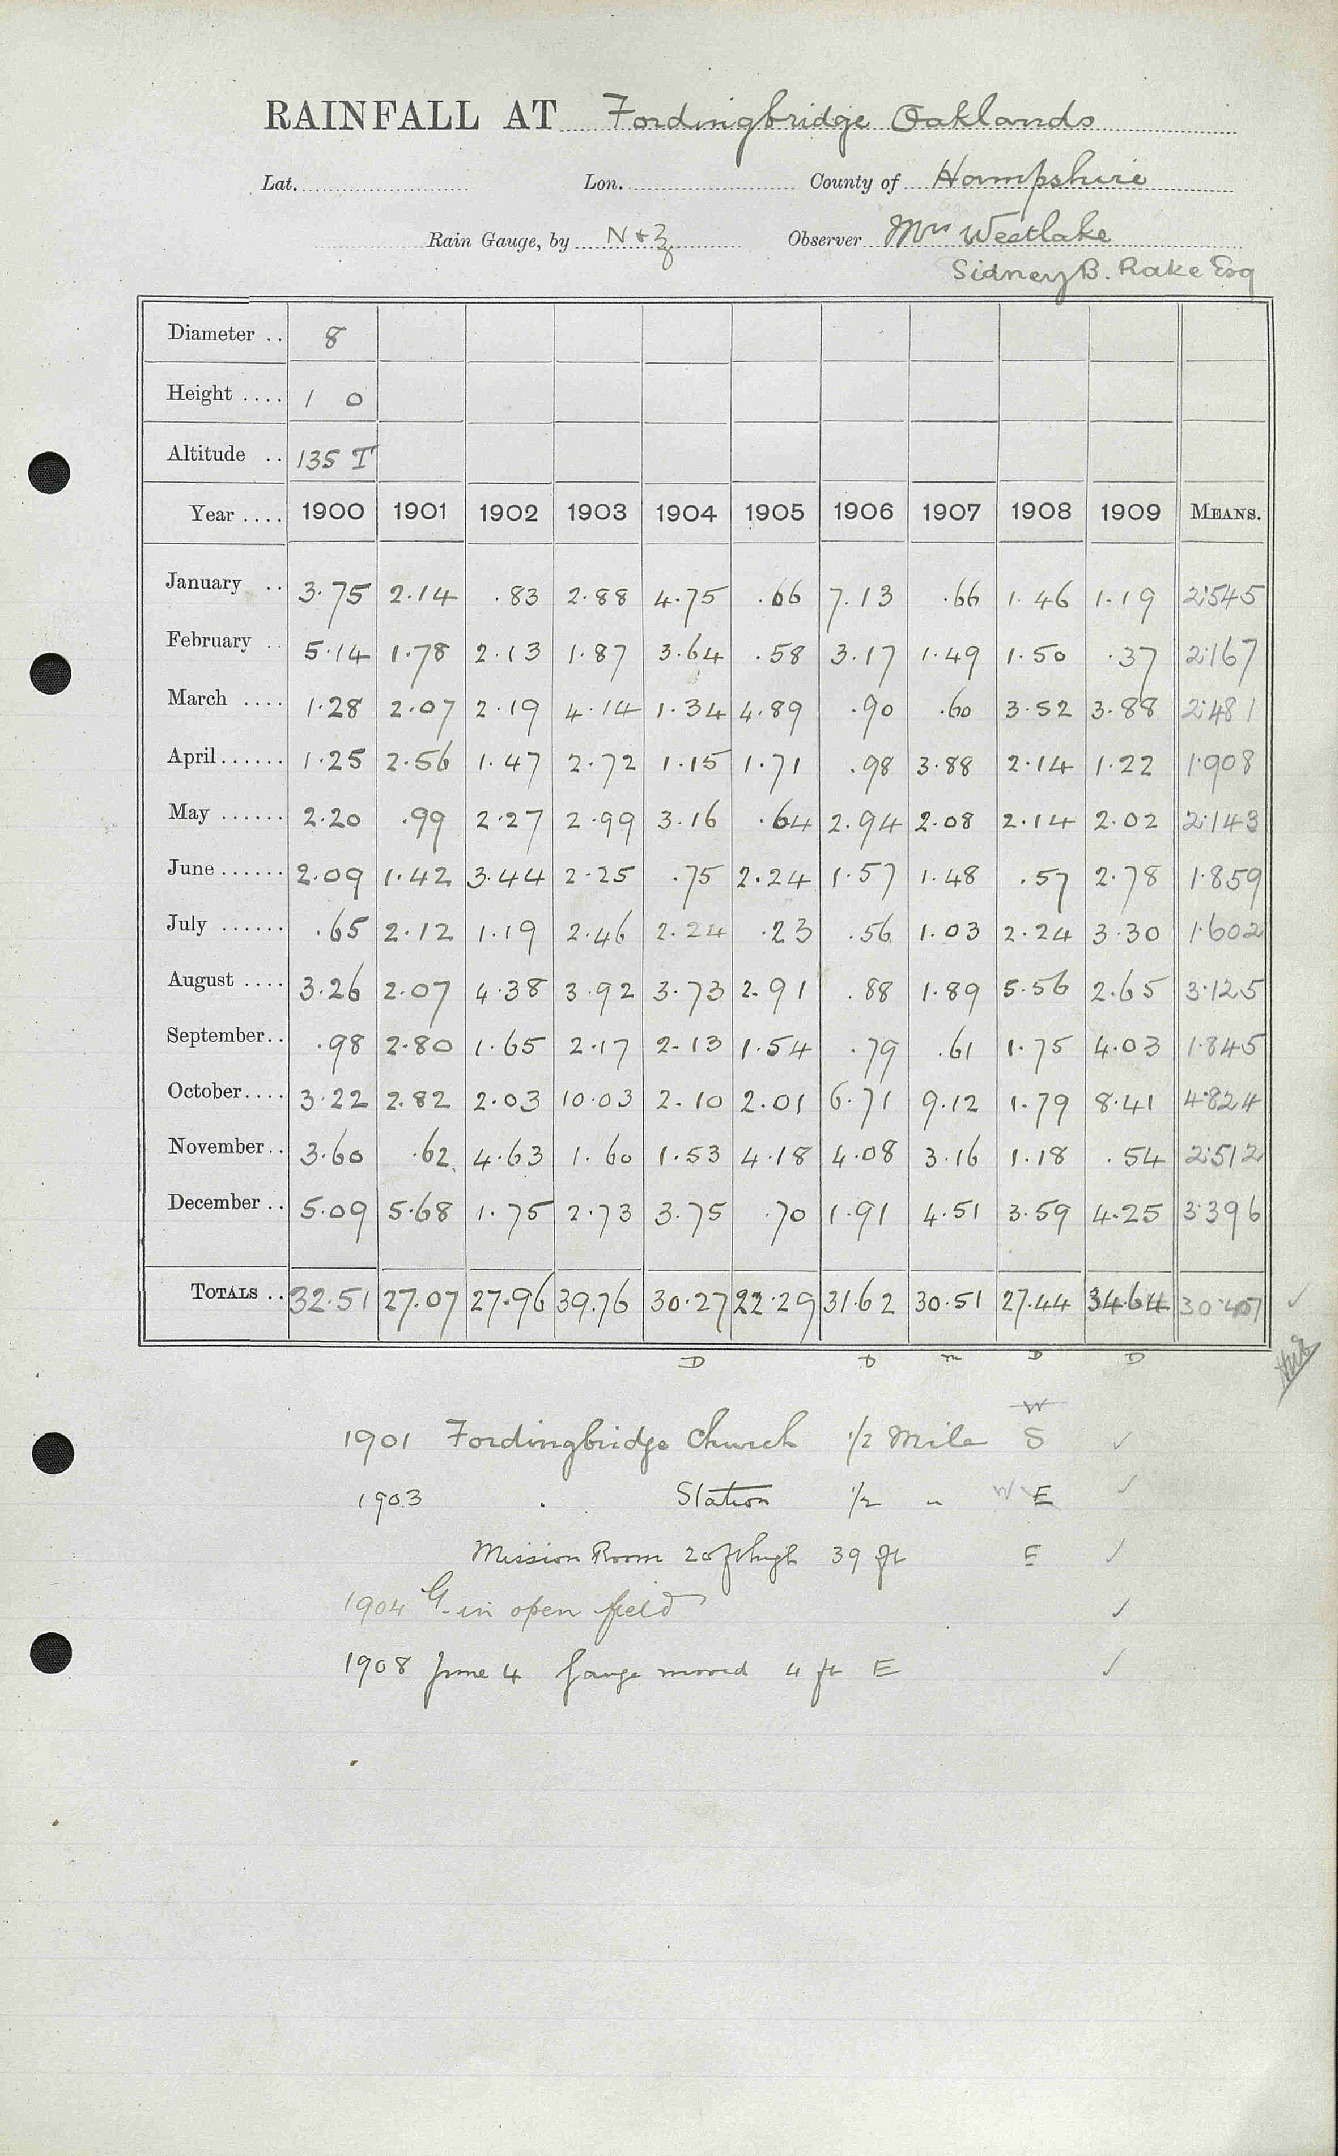 RAINFALL AT Fordingbridge Oaklands
Lat. Lon. County of Hampshire
Rain Gauge, by N & Z Observer Mrs Westlake
Sidney B. Rake Esq
Diameter .. 8
Height .... 1 0
Altitude .. 135 T
Year .... 1900 1901 1902 1903 1904 1905 1906 1907 1908 1909 MEANS.
January .. 3.75 2.14 .83 2.88 4.75 .66 7.13 .66 1.46 1.19 2.545
February .. 5.14 1.78 2.13 1.87 3.64 .58 3.17 1.49 1.50 .37 2.167
March .... 1.28 2.07 2.19 4.14 1.34 4.89 .90 .60 3.52 3.88 2.481
April...... 1.25 2.56 1.47 2.72 1.15 1.71 .98 3.88 2.14 1.22 1.908
May ...... 2.20 .99 2.27 2.99 3.16 .64 2.94 2.08 2.14 2.02 2.143
June ...... 2.09 1.42 3.44 2.25 .75 2.24 1.57 1.48 .57 2.78 1.859
July ...... .65 2.12 1.19 2.46 2.24 .23 .56 1.03 2.24 3.30 1.602
August .... 3.26 2.07 4.38 3.92 3.73 2.91 .88 1.89 5.56 2.65 3.125
September.. .98 2.80 1.65 2.17 2.13 1.54 .79 .61 1.75 4.03 1.845
October.... 3.22 2.82 2.03 10.03 2.10 2.01 6.71 9.12 1.79 8.41 4.824
November.. 3.60 .62 4.63 1.60 1.53 4.18 4.08 3.16 1.18 .54 2.512
December .. 5.09 5.68 1.75 2.73 3.75 .70 1.91 4.51 3.59 4.25 3.396
TOTALS .. 32.51 27.07 27.96 39.76 30.27 22.29 31.62 30.51 27.44 34.64 30.407 ✓
D D m D D
W
1901 Fordingbridge Church 1/2 Mile S ✓
1903 . Station 1/2 " W E ✓
Mission Room 20 ft high 39 ft E ✓
1904 G. in open field ✓
1908 June 4 Gauge moved 4 ft E ✓